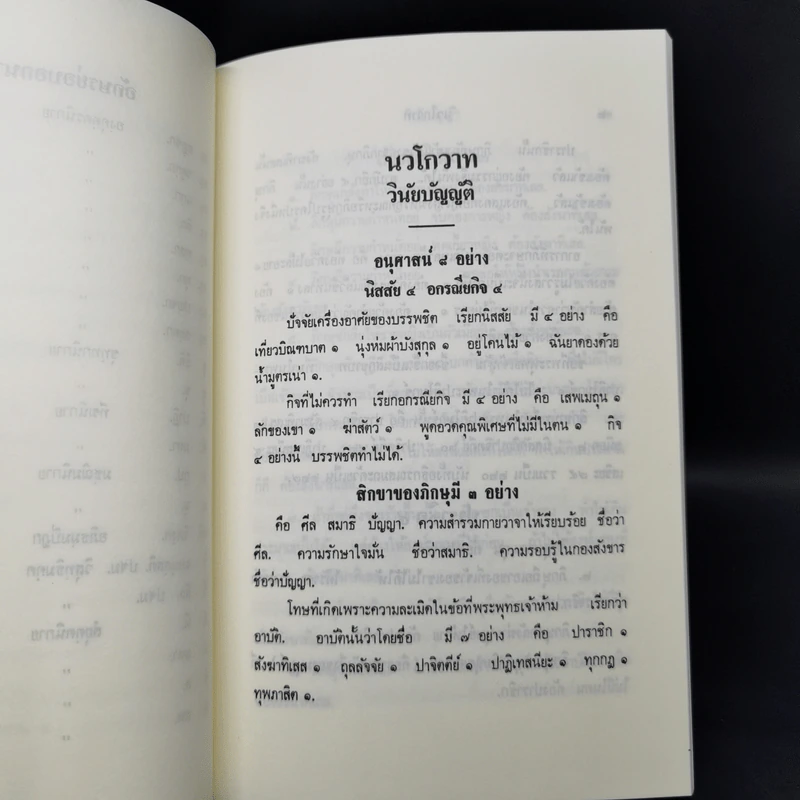 นวโกวาท
วินัยบัญญัติ
อนุศาสน์ ๘ อย่าง
นิสสัย ๔ อกรณียกิจ ๔
ปัจจัยเครื่องอาศัยของบรรพชิต เรียกนิสสัย มี ๔ อย่าง คือ
เที่ยวบิณฑบาต ๑ นุ่งห่มผ้าบังสุกุล ๑ อยู่โคนไม้ ๑ ฉันยาดองด้วย
น้ำมูตรเน่า ๑.
กิจที่ไม่ควรทำ เรียกอกรณียกิจ มี ๔ อย่าง คือ เสพเมถุน ๑
ลักของเขา ๑ ฆ่าสัตว์ ๑ พูดอวดคุณพิเศษที่ไม่มีในตน ๑ กิจ
๔ อย่างนี้ บรรพชิตทำไม่ได้.
สิกขาของภิกษุมี ๓ อย่าง
คือ ศีล สมาธิ ปัญญา. ความสำรวมกายวาจาให้เรียบร้อย ชื่อว่า
ศีล. ความรักษาใจมั่น ชื่อว่าสมาธิ. ความรอบรู้ในกองสังขาร
ชื่อว่าปัญญา.
โทษที่เกิดเพราะความละเมิดในข้อที่พระพุทธเจ้าห้าม เรียกว่า
อาบัติ. อาบัตินั้นว่าโดยชื่อ มี ๗ อย่าง คือ ปาราชิก ๑
สังฆาทิเสส ๑ ถุลลัจจัย ๑ ปาจิตตีย์ ๑ ปาฏิเทสนียะ ๑ ทุกกฏ ๑
ทุพภาสิต ๑.